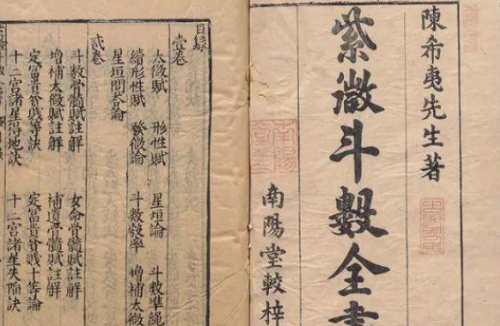 陳希夷先生著
紫微斗數全書
南陽堂較梓
目録
壹卷
太微賦 形性賦 星垣論 斗數準繩
續形性賦 發微論 斗數彀率 增補太微
星垣問答論
貳卷
斗數骨髓賦註解 女命骨髓賦註解
增補太微賦註解 補遺骨髓賦註解
定富貴貧賤等訣 定富貴貧賤十等論
十二宮諸星得地訣 十二宮諸星失陷訣